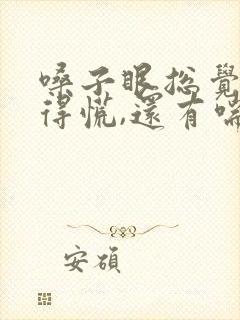 嗓子眼總覺
得慌,還有喘
安碩